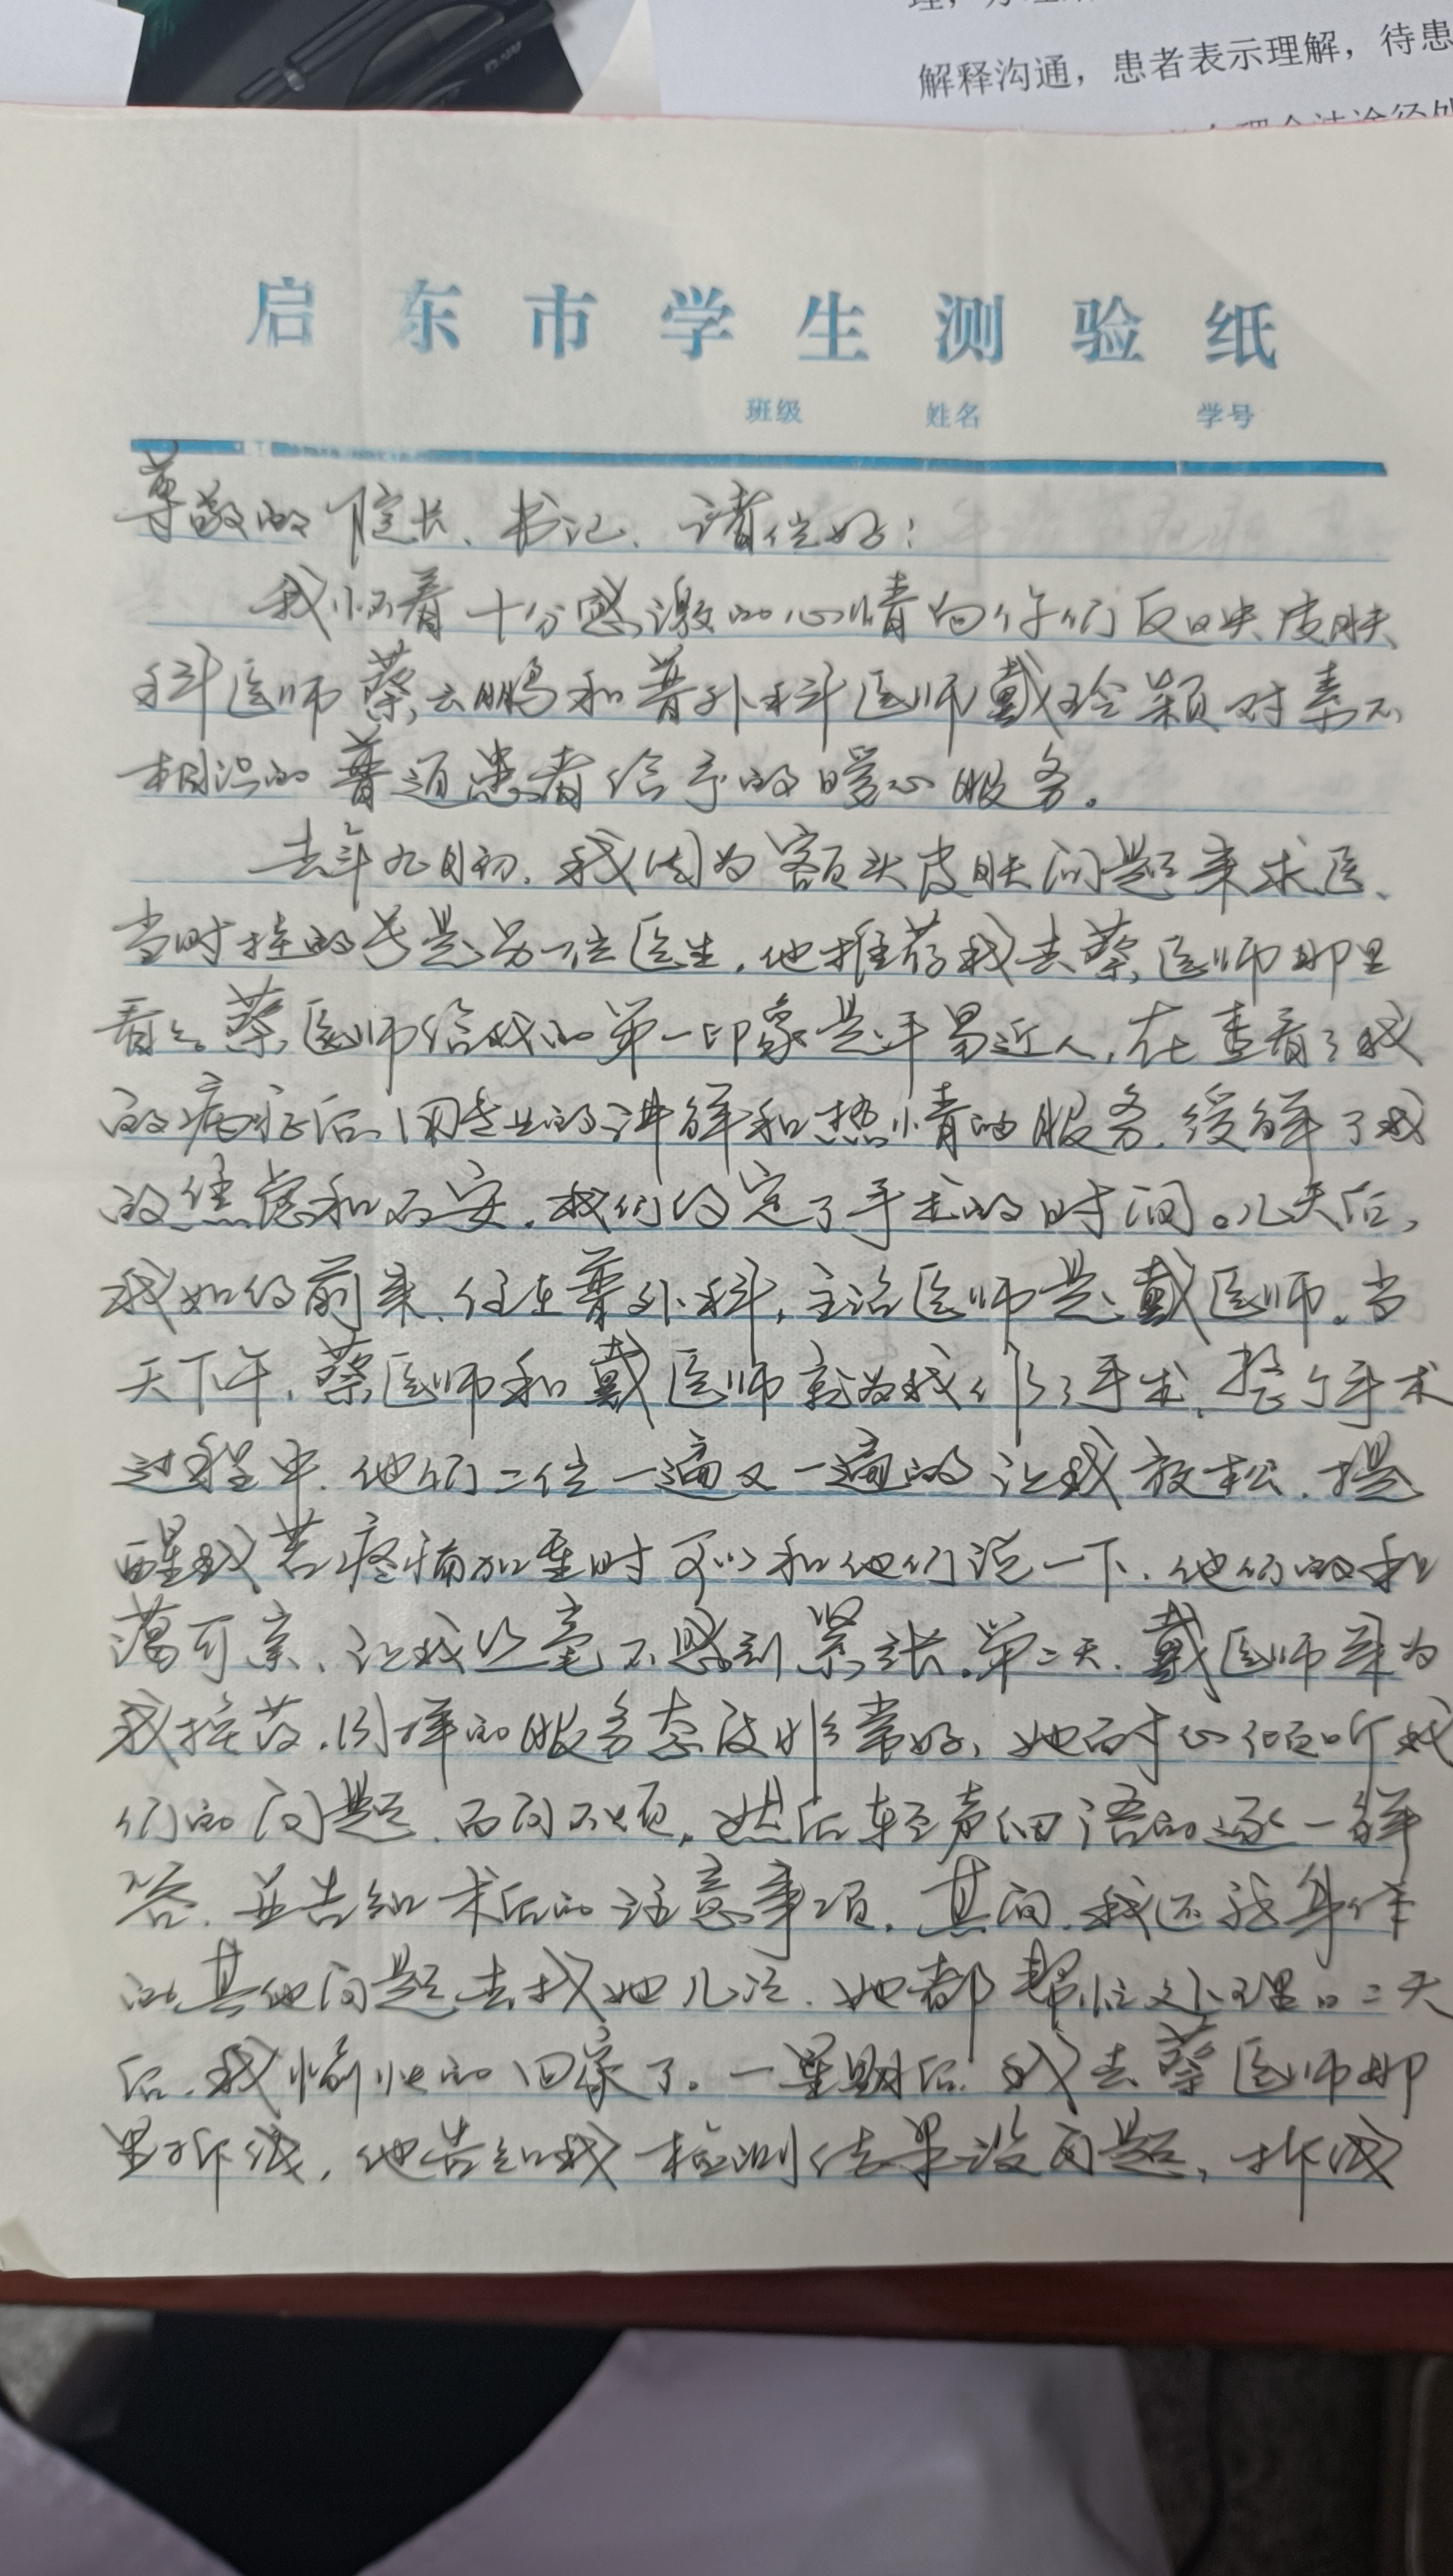 解释沟通，患者表示理解，待患
启东市学生测验纸
班级 姓名 学号
尊敬的院长、书记、诸位好：
我怀着十分感激的心情向你们反映皮肤
科医师蔡云鹏和普外科医师戴玲颖对素不
相识的普通患者给予的暖心服务。
去年九月初，我因为额头皮肤问题来求医、
当时挂的号是另一位医生，他推荐我去蔡医师那里
看看。蔡医师给我的第一印象是平易近人，在查看了我
的病症后，用专业的讲解和热情的服务，缓解了我
的焦虑和不安，我们约定了手术的时间。几天后，
我如约前来，住在普外科，主治医师是戴医师。当
天下午，蔡医师和戴医师就为我作了手术，整个手术
过程中，他们二位一遍又一遍的让我放松，提
醒我若疼痛加重时可以和他们说一下，他们的和
蔼可亲，让我丝毫不感到紧张。第二天，戴医师来为
我换药，同样的服务态度非常好，她耐心倾听我
们的问题，百问不烦，然后轻声细语的逐一解
答，并告知术后的注意事项。其间，我还就身体
的其他问题去找她几次，她都帮忙处理。二天
后，我愉快的回家了。一星期后，我去蔡医师那
里拆线，他告知我检测结果没问题，拆线